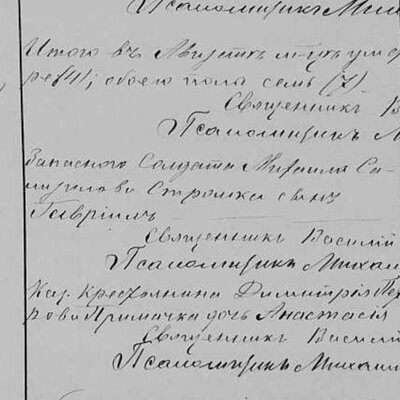 Псаломщикъ Мих
Итого въ Августѣ м-цѣ умер
ревш; обоего пола семь (7)
Священникъ В
Псаломщикъ М
Запасного Солдата Михаила Са-
муилова Строшка сынъ
Гавріилъ
Священникъ Василій
Псаломщикъ Михаи
Каз. Крестьянина Димитрія
рова Примачка дочь Анастасія
Священникъ Василій
Псаломщикъ Михаи